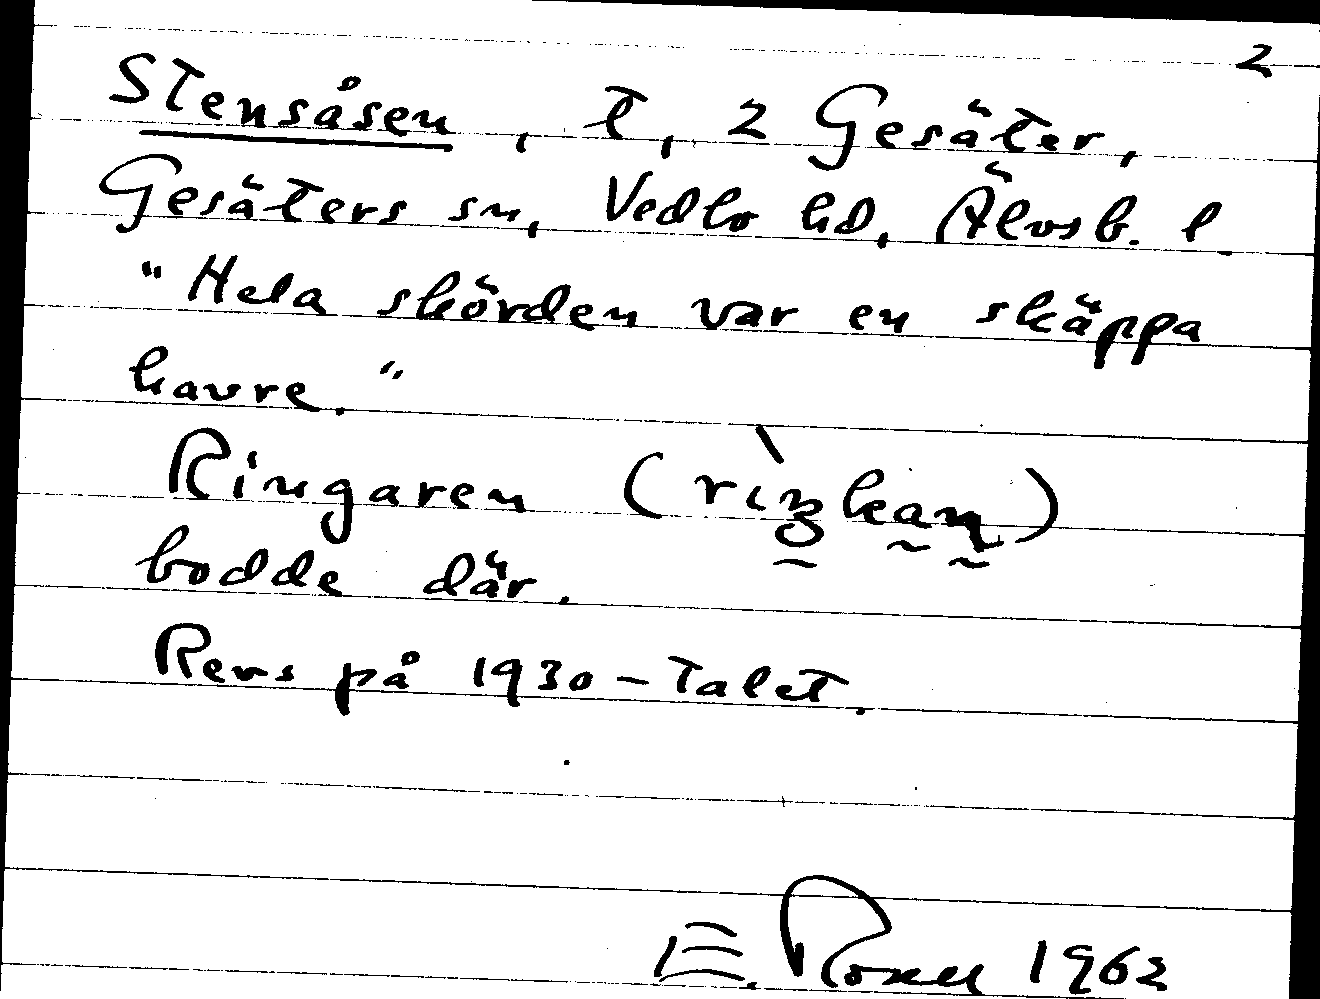 2
Stensåsen, t, 2 Gesäter,
Gesäters sn, Vedbo hd, Älvsb. l.
"Hela skörden var en skäppa
havre."
Ringaren
bodde där.
Revs på 1930-talet.
E. 1962